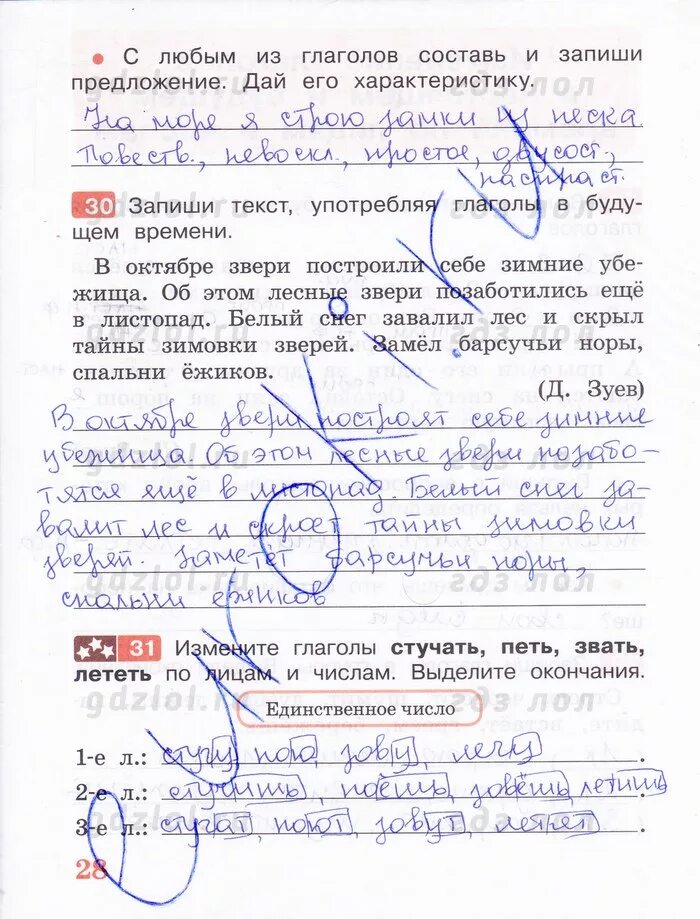 • С любым из глаголов составь и запиши
предложение. Дай его характеристику.
На море я строю замки из песка.
Повеств., невоскл., простое, двусост.,
распраст.
30 Запиши текст, употребляя глаголы в буду-
щем времени.
В октябре звери построили себе зимние убе-
жища. Об этом лесные звери позаботились ещё
в листопад. Белый снег завалил лес и скрыл
тайны зимовки зверей. Замёл барсучьи норы,
спальни ёжиков.
(Д. Зуев)
В октябре звери построят себе зимние
убежища. Об этом лесные звери позабо-
тятся ещё в листопад. Белый снег за-
валит лес и скроет тайны зимовки
зверей. Заметёт барсучьи норы,
спальни ёжиков
31 Измените глаголы стучать, петь, звать,
лететь по лицам и числам. Выделите окончания.
Единственное число
1-е л.: стучу, пою, зову, лечу.
2-е л.: стучишь, поёшь, зовёшь, летишь.
3-е л.: стучат, поют, зовут, летят.
28
gdzlol.ru гдз лол